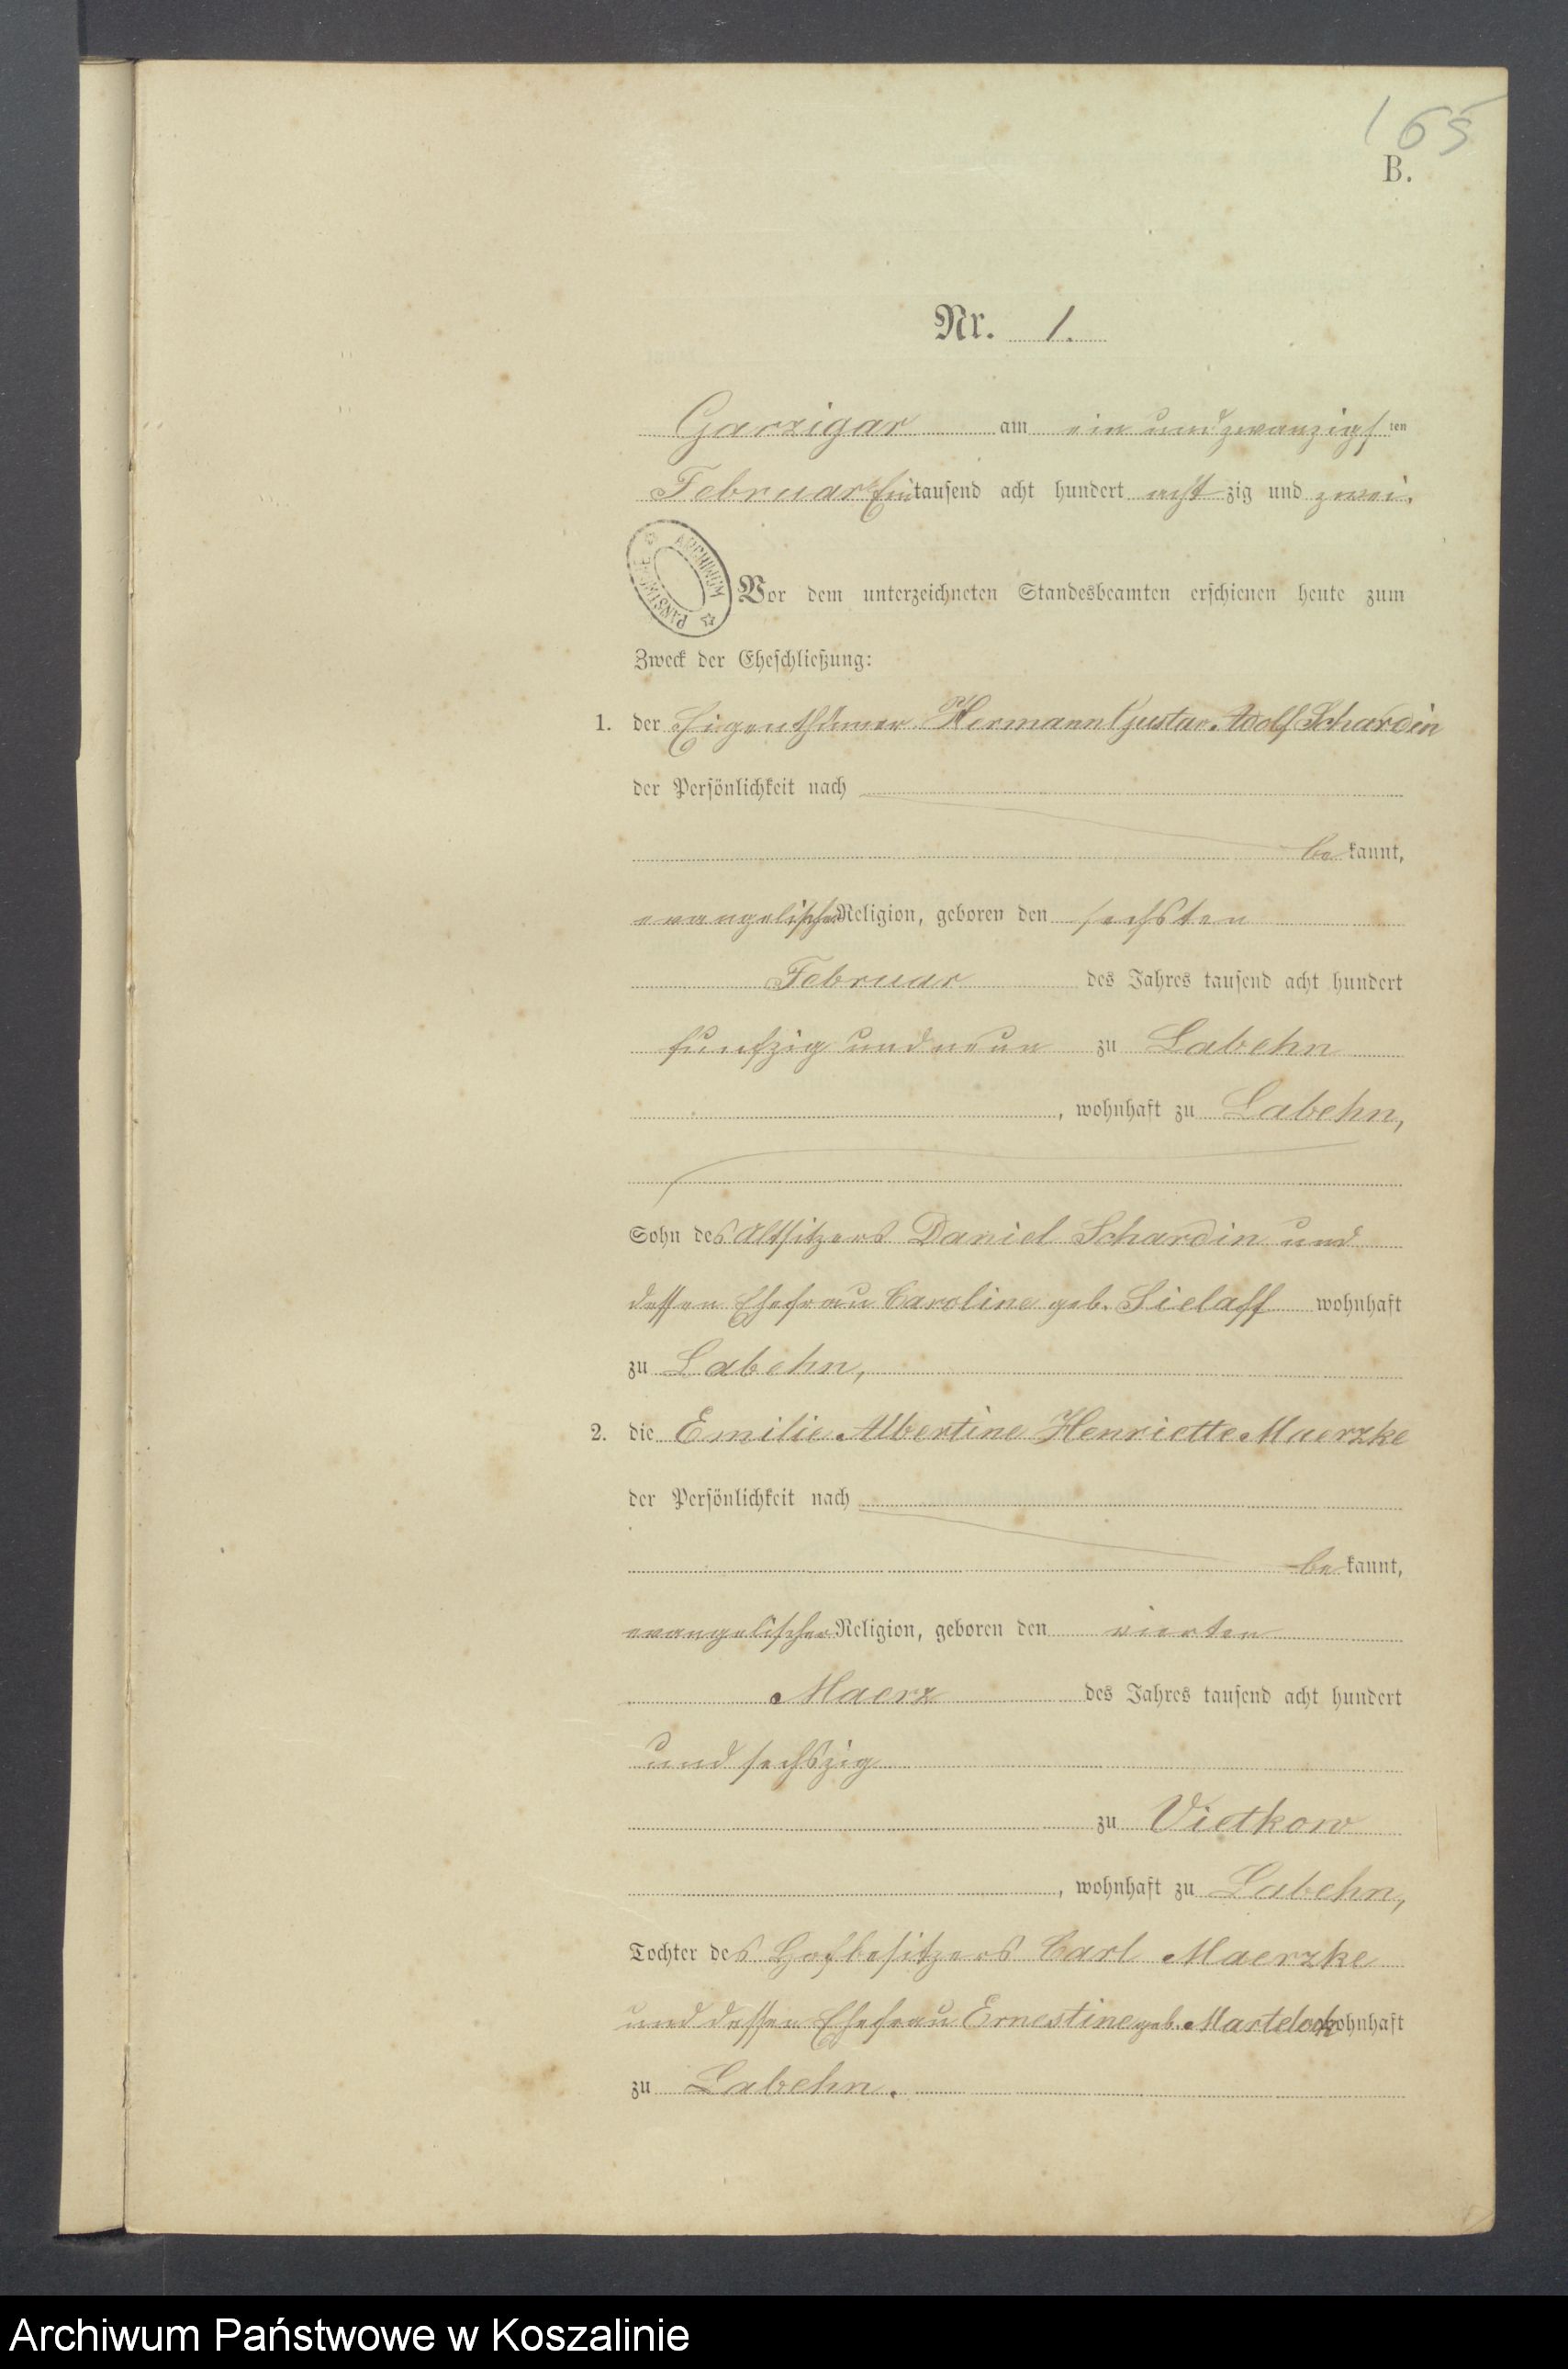 165
B.
Nr. 1.
Garzigar am ein und zwanzigsten
Februar Eintausend acht hundert achtzig und zwei.
ARCHIWUM PAŃSTWOWE
Vor dem unterzeichneten Standesbeamten erschienen heute zum
Zweck der Eheschließung:
1. der Eigenthümer Hermann Gustav Adolf Schardin
der Persönlichkeit nach
bekannt,
evangelischer Religion, geboren den sechsten
Februar des Jahres tausend acht hundert
funfzig und neun zu Labehn
, wohnhaft zu Labehn,
Sohn des Altsitzers Daniel Schardin und
dessen Ehefrau Caroline geb. Sielaff wohnhaft
zu Labehn,
2. die Emilie Albertine Henriette Maerzke
der Persönlichkeit nach
bekannt,
evangelischer Religion, geboren den vierten
Maerz des Jahres tausend acht hundert
und sechszig
zu Vietkow
, wohnhaft zu Labehn,
Tochter des Hofbesitzers Carl Maerzke
und dessen Ehefrau Ernestine geb. wohnhaft
zu Labehn.
Archiwum Państwowe w Koszalinie